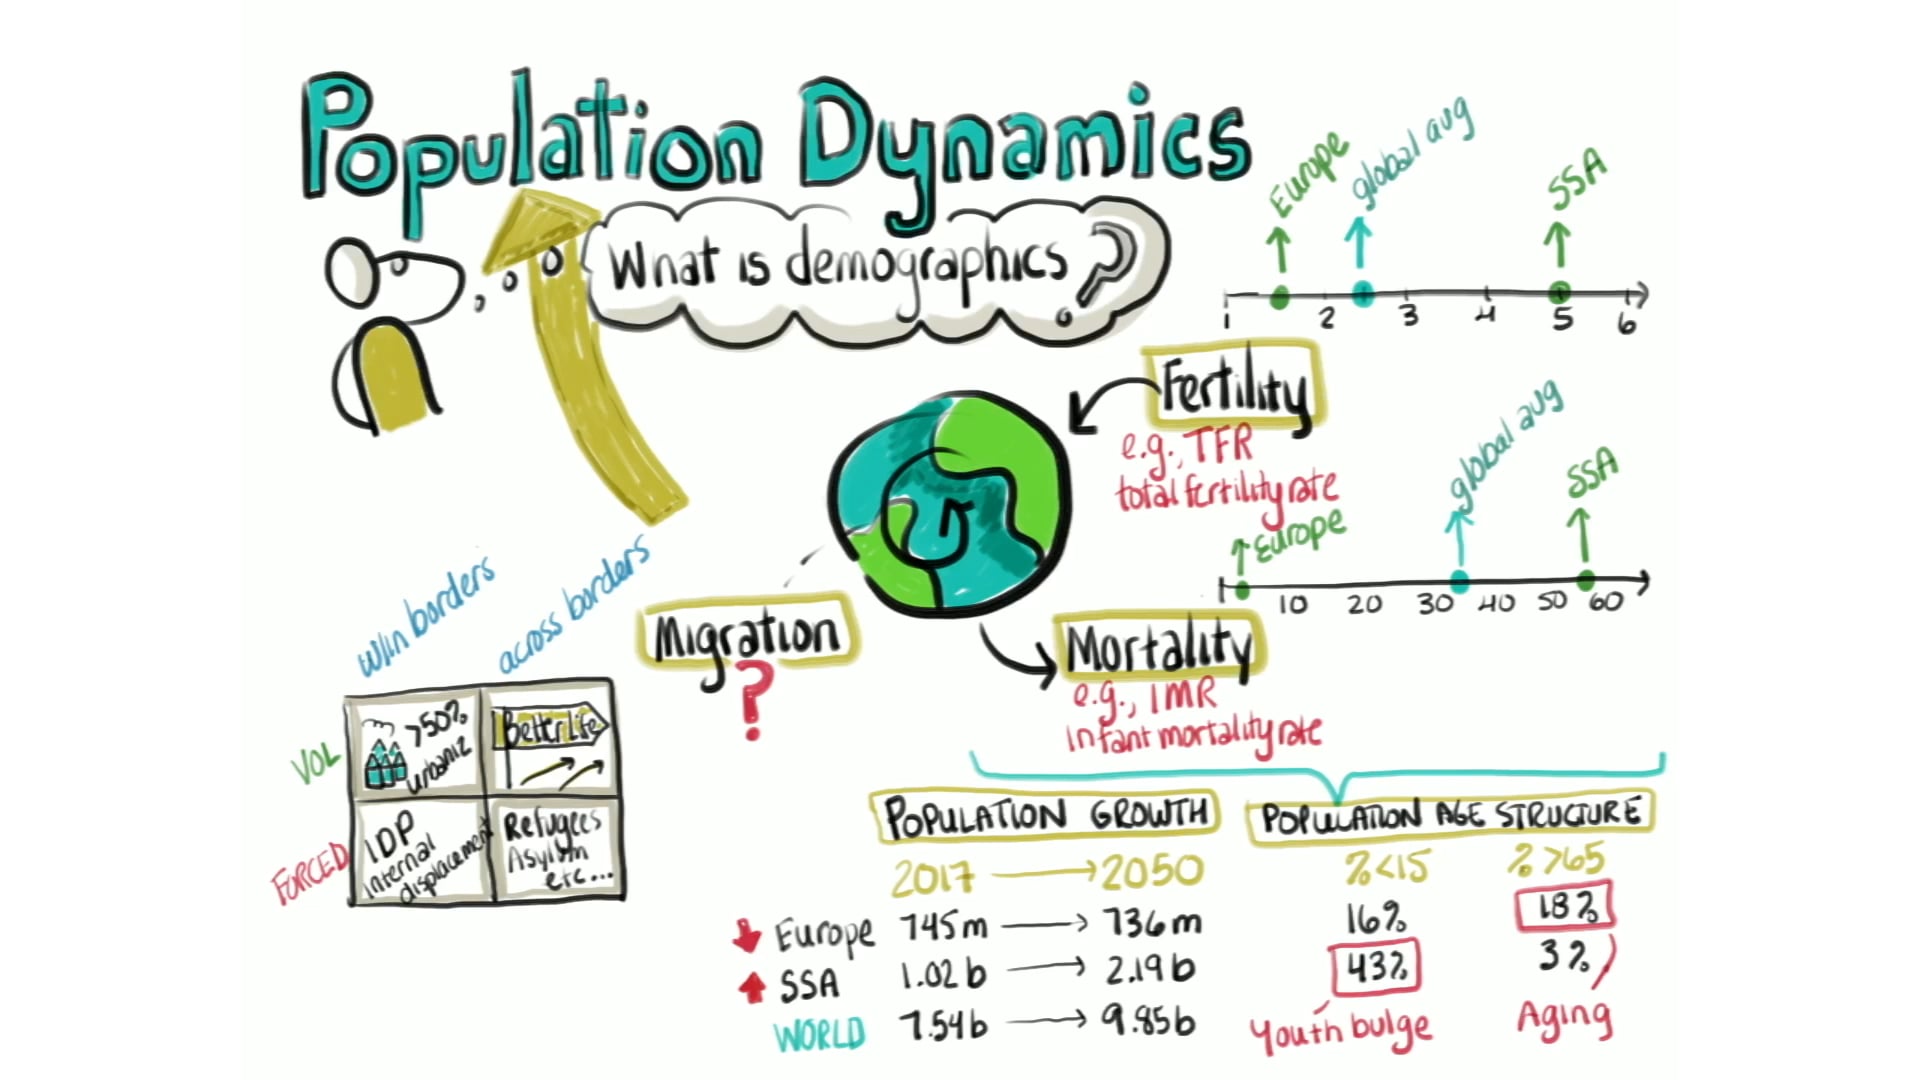 Population Dynamics
What is demographics?
Europe
global avg
SSA
1 2 3 4 5 6
Fertility
e.g., TFR
total fertility rate
Europe
global avg
SSA
1 10 20 30 40 50 60
Migration
?
Mortality
e.g., IMR
infant mortality rate
w/in borders
across borders
VOL
>50%
urbaniz
Better Life
FORCED
IDP
internal
displacement
Refugees
Asylum
etc...
POPULATION GROWTH
2017 → 2050
Europe 745m → 736m
SSA 1.02b → 2.19b
WORLD 7.54b → 9.85b
POPULATION AGE STRUCTURE
%<15 %>65
16% 18%
43% 3%
Youth bulge
Aging